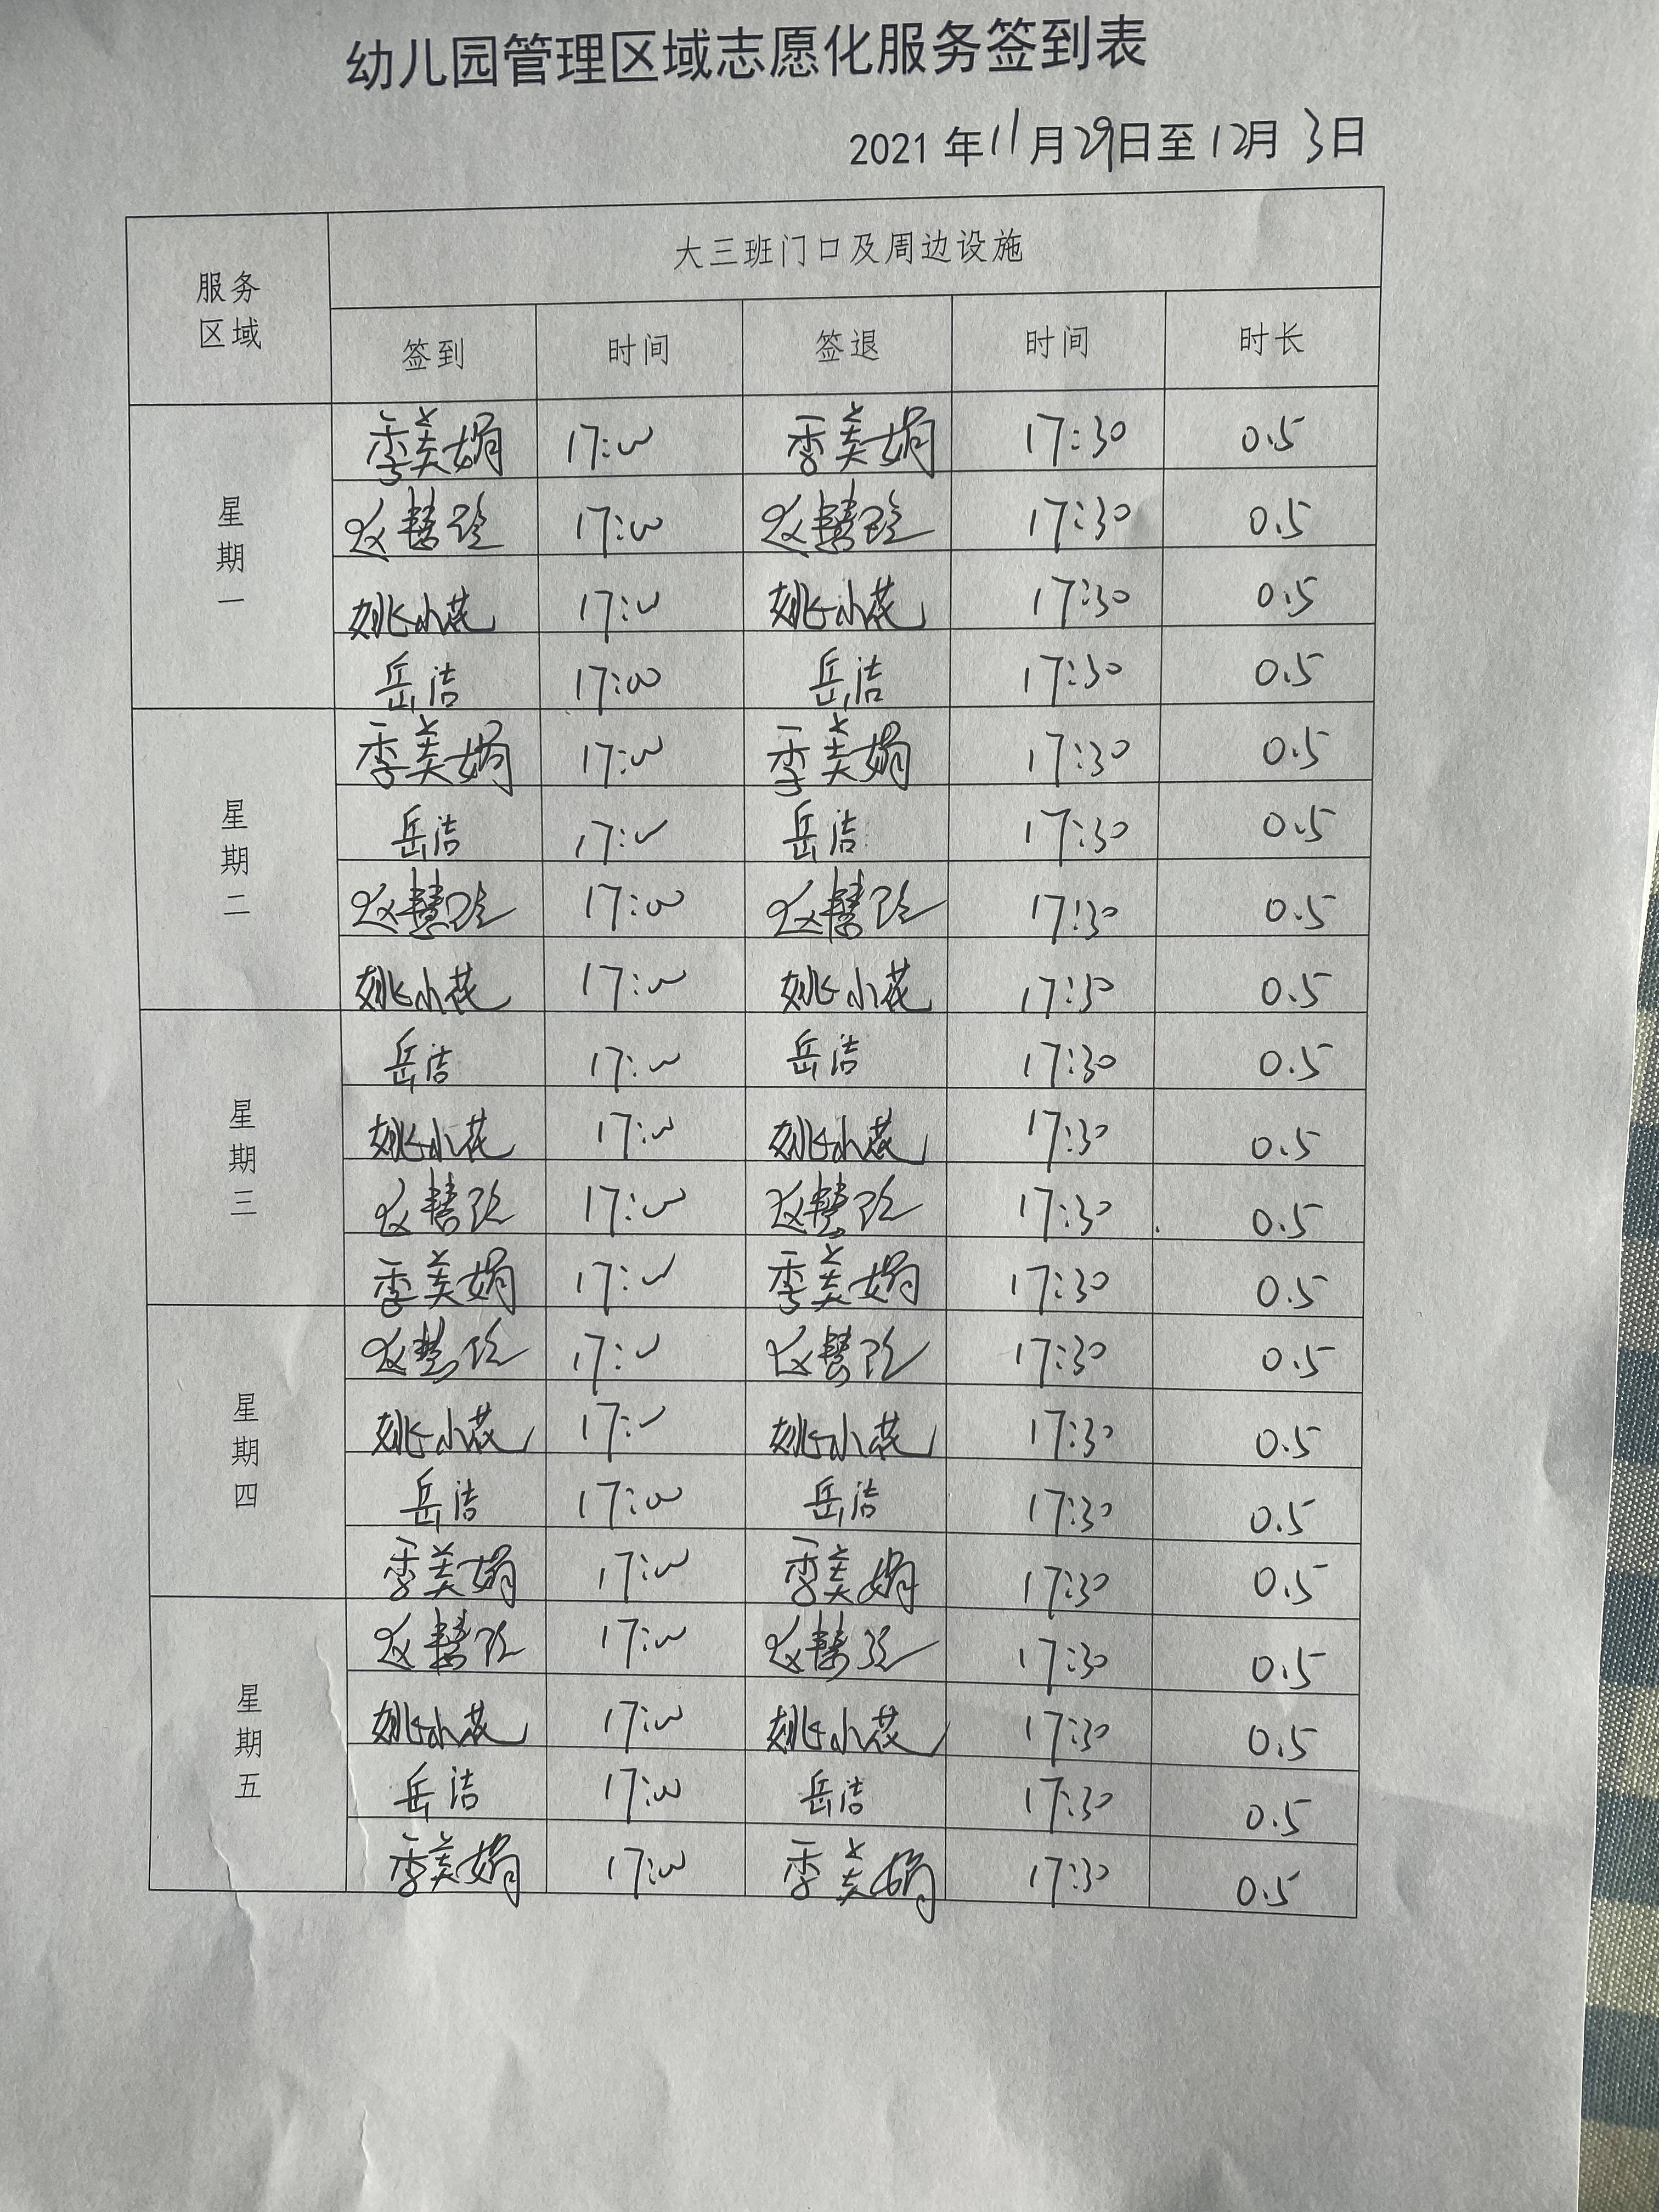 幼儿园管理区域志愿化服务签到表
2021年11月29日至12月3日
服务区域 大三班门口及周边设施
签到 时间 签退 时间 时长
星期一
季美娟 17:00 季美娟 17:30 0.5
赵慧玲 17:00 赵慧玲 17:30 0.5
姚小花 17:00 姚小花 17:30 0.5
岳洁 17:00 岳洁 17:30 0.5
星期二
季美娟 17:00 季美娟 17:30 0.5
岳洁 17:00 岳洁 17:30 0.5
赵慧玲 17:00 赵慧玲 17:30 0.5
姚小花 17:00 姚小花 17:30 0.5
星期三
岳洁 17:00 岳洁 17:30 0.5
姚小花 17:00 姚小花 17:30 0.5
赵慧玲 17:00 赵慧玲 17:30 0.5
季美娟 17:00 季美娟 17:30 0.5
星期四
赵慧玲 17:00 赵慧玲 17:30 0.5
姚小花 17:00 姚小花 17:30 0.5
岳洁 17:00 岳洁 17:30 0.5
季美娟 17:00 季美娟 17:30 0.5
星期五
赵慧玲 17:00 赵慧玲 17:30 0.5
姚小花 17:00 姚小花 17:30 0.5
岳洁 17:00 岳洁 17:30 0.5
季美娟 17:00 季美娟 17:30 0.5